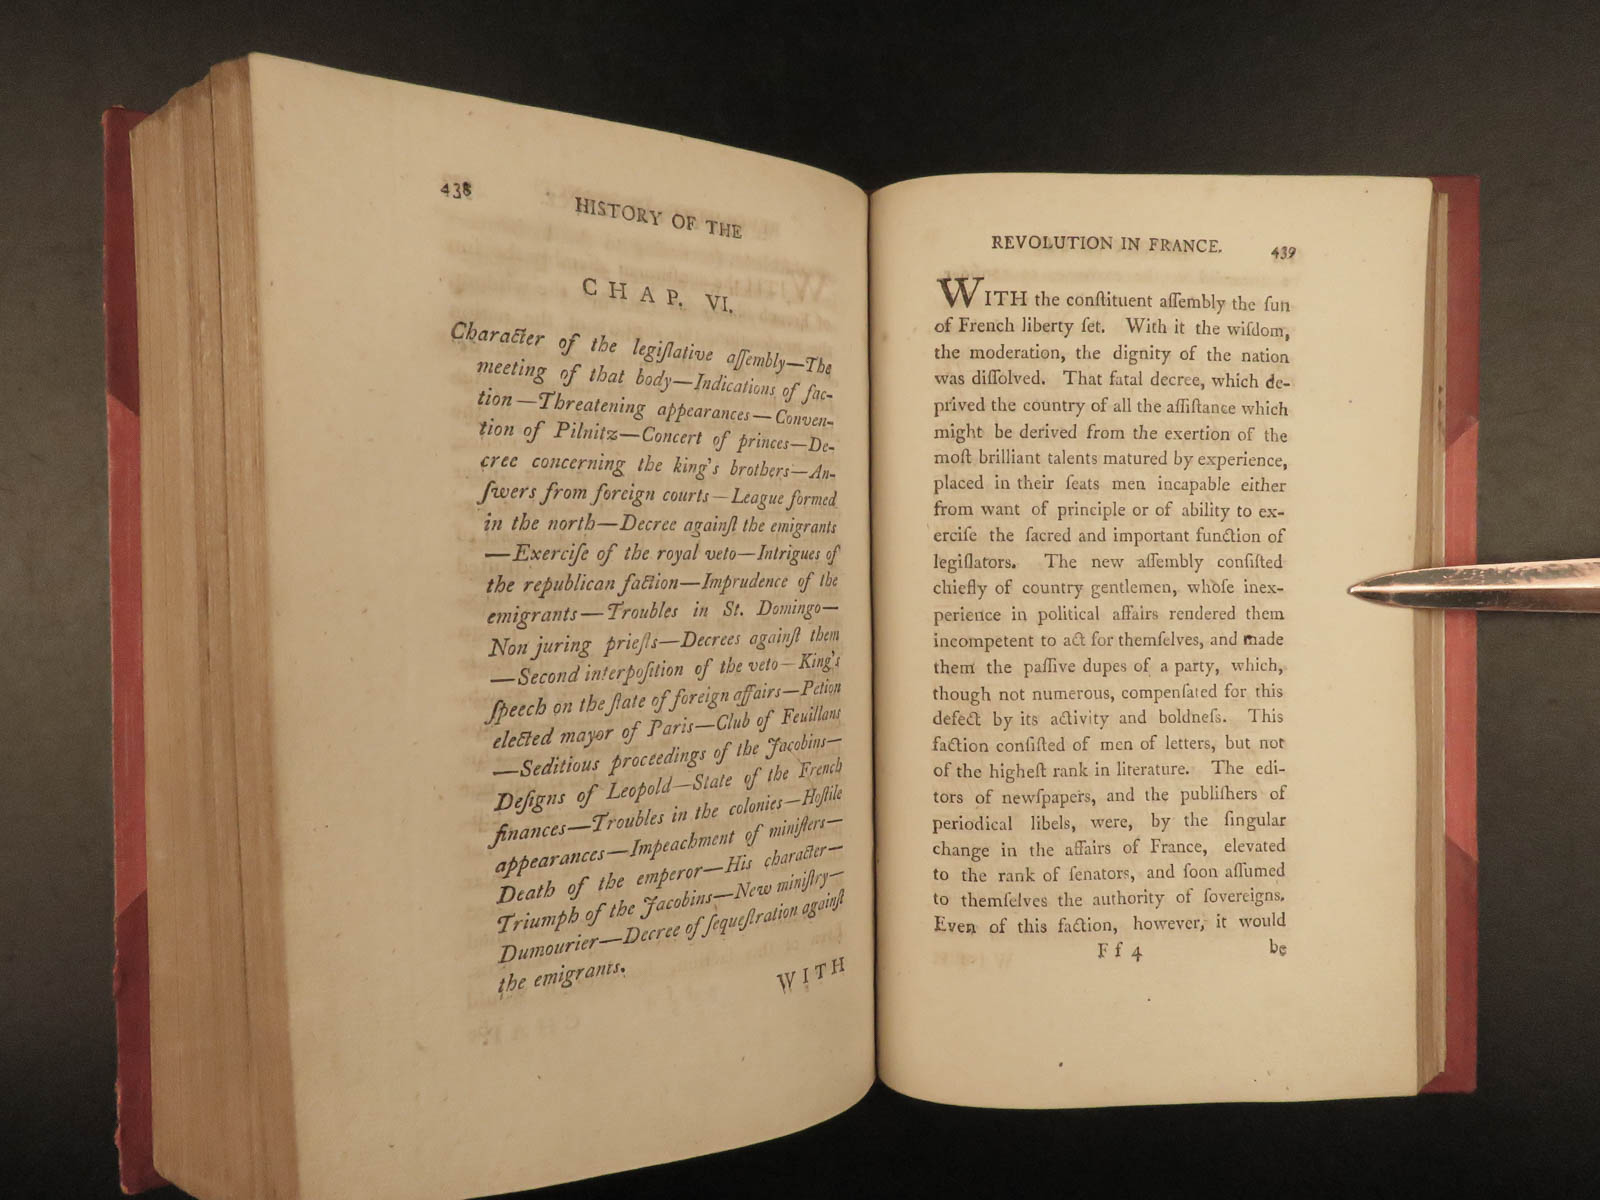 438
HISTORY OF THE
CHAP. VI.
Character of the legiſlative aſſembly—The
meeting of that body—Indications of fac-
tion—Threatening appearances—Conven-
tion of Pilnitz—Concert of princes—De-
cree concerning the king's brothers—An-
ſwers from foreign courts—League formed
in the north—Decree againſt the emigrants
—Exerciſe of the royal veto—Intrigues of
the republican faction—Imprudence of the
emigrants—Troubles in St. Domingo—
Non juring prieſts—Decrees againſt them
—Second interpoſition of the veto—King's
ſpeech on the ſtate of foreign affairs—Petion
elected mayor of Paris—Club of Feuillans
—Seditious proceedings of the Jacobins—
Deſigns of Leopold—State of the French
finances—Troubles in the colonies—Hoſtile
appearances—Impeachment of miniſters—
Death of the emperor—His character—
Triumph of the Jacobins—New miniſtry—
Dumourier—Decree of ſequeſtration againſt
the emigrants.
WITH
REVOLUTION IN FRANCE. 439
WITH the conſtituent aſſembly the ſun
of French liberty ſet. With it the wiſdom,
the moderation, the dignity of the nation
was diſſolved. That fatal decree, which de-
prived the country of all the aſſiſtance which
might be derived from the exertion of the
moſt brilliant talents matured by experience,
placed in their ſeats men incapable either
from want of principle or of ability to ex-
erciſe the ſacred and important function of
legiſlators. The new aſſembly conſiſted
chiefly of country gentlemen, whoſe inex-
perience in political affairs rendered them
incompetent to act for themſelves, and made
them the paſſive dupes of a party, which,
though not numerous, compenſated for this
defect by its activity and boldneſs. This
faction conſiſted of men of letters, but not
of the higheſt rank in literature. The edi-
tors of newſpapers, and the publiſhers of
periodical libels, were, by the ſingular
change in the affairs of France, elevated
to the rank of ſenators, and ſoon aſſumed
to themſelves the authority of ſovereigns.
Even of this faction, however, it would
F f 4 be